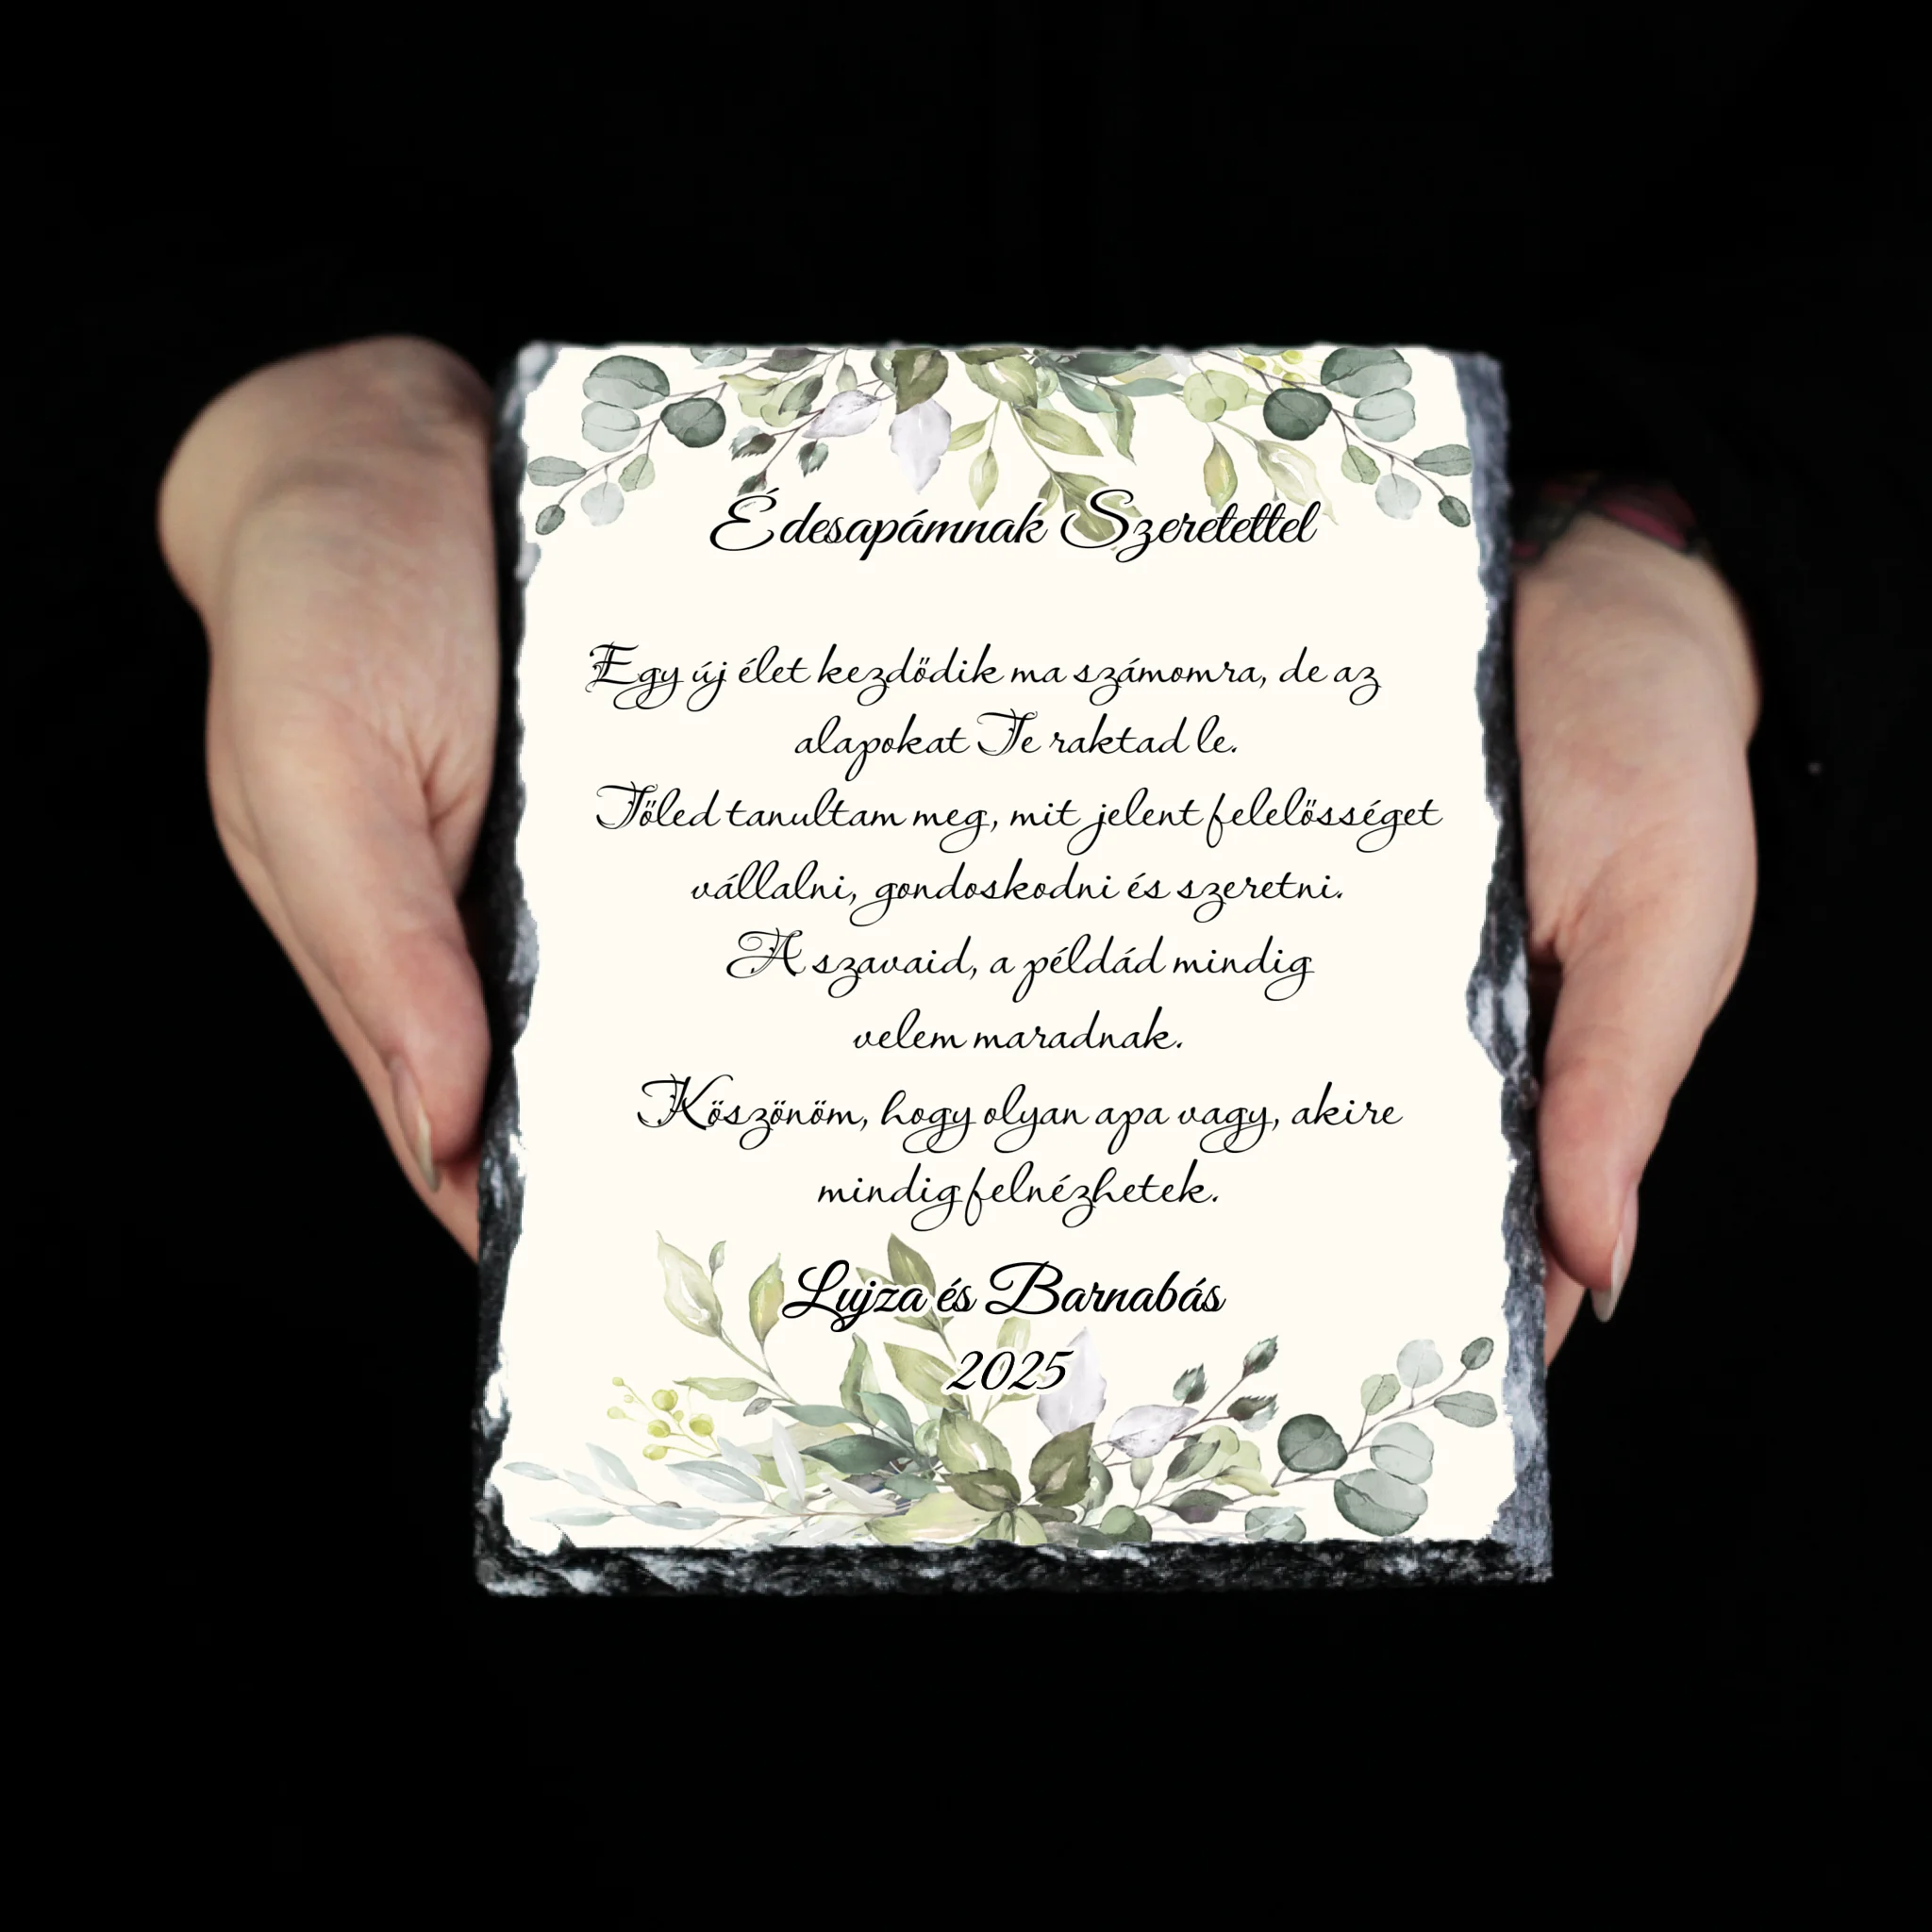 Édesapámnak Szeretettel
Egy új élet kezdődik ma számomra, de az
alapokat Te raktad le.
Tőled tanultam meg, mit jelent felelősséget
vállalni, gondoskodni és szeretni.
A szavaid, a példád mindig
velem maradnak.
Köszönöm, hogy olyan apa vagy, akire
mindig felnézhetek.
Lujza és Barnabás
2025